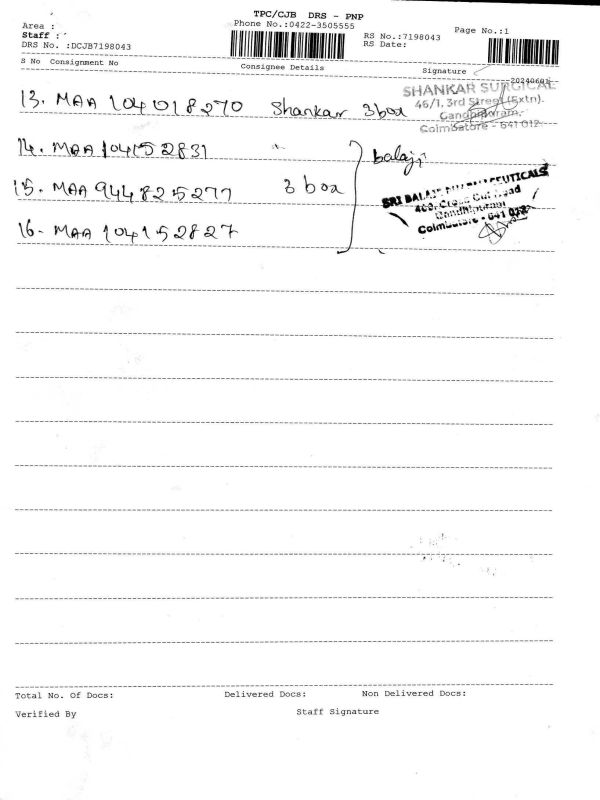 TPC/CJB DRS - PNP
Phone No.:0422-3505555
Area :
Staff :
DRS No. :DCJB7198043
RS No.:7198043
RS Date:
Page No.:1
S No Consignment No Consignee Details Signature
20240601
13. MAA 104018270 Shankar 3 box
SHANKAR SURGICAL
46/1, 3rd Street (Extn).
Gandhipuram,
Coimbatore - 641 012.
14. MAA 104152831 balaji
15. MAA 944825277 3 box
SRI BALAJI PHARMACEUTICALS
Cross Cut Road
Gandhipuram
Coimbatore - 641 012
16. MAA 104152827
Total No. Of Docs: Delivered Docs: Non Delivered Docs:
Verified By Staff Signature